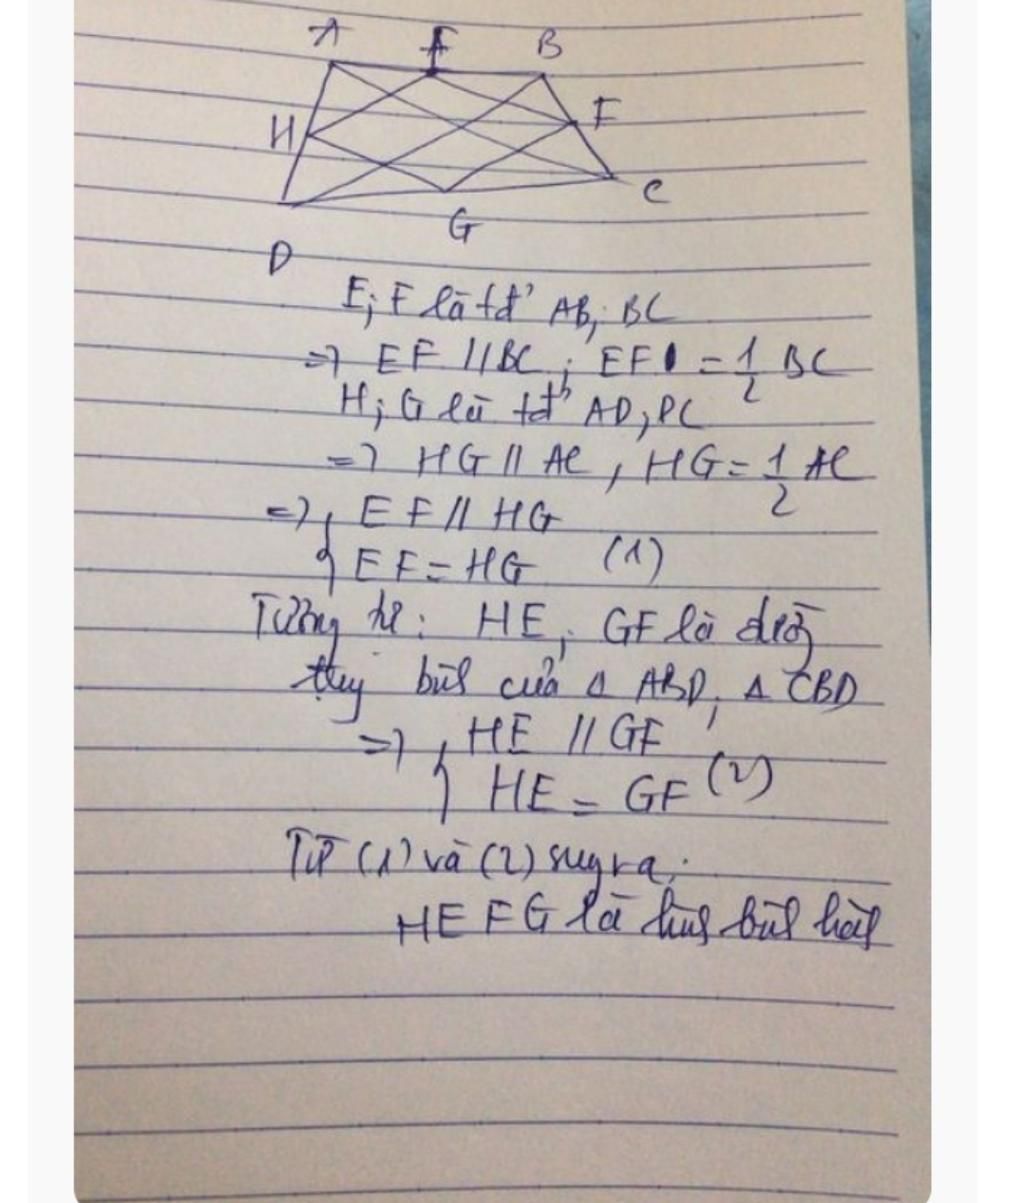 A E B
H F
C
G
D
E; F là tđ' AB; BC
=> EF // BC ; EF = 1/2 BC
H; G là tđ' AD, DC
=> HG // AC , HG = 1/2 AC
=> { EF // HG
EF = HG (1)
Tương tự: HE, GF là đường
bình của Δ ABD, Δ CBD
=> { HE // GF
HE = GF (2)
Từ (1) và (2) suy ra:
HEFG là hình bình hành